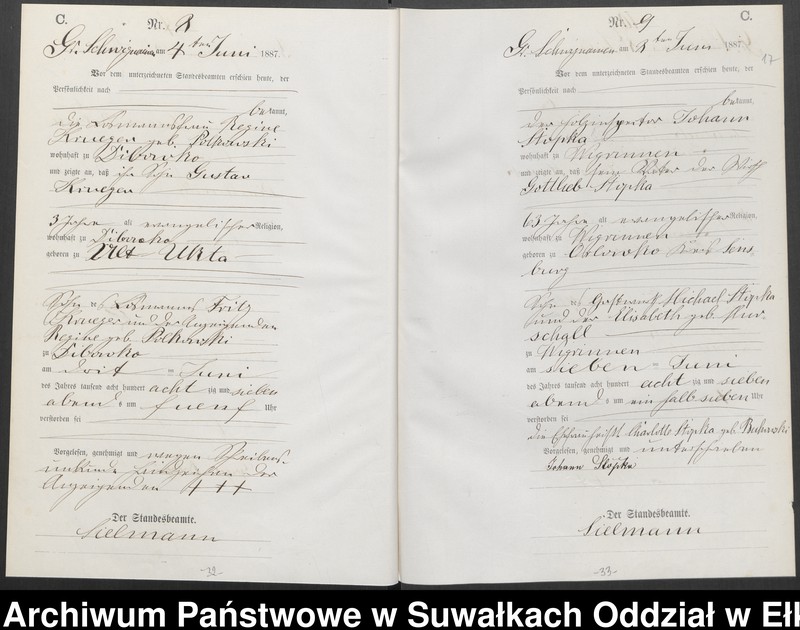 C.
Nr. 8
Gr. Schwignainen am 4ten Juni 1887.
Vor dem unterzeichneten Standesbeamten erschien heute, der
Persönlichkeit nach
bekannt,
die Losmannsfrau Regine
Krueger geb. Polkowski
wohnhaft zu Dibowko
und zeigte an, daß ihr Sohn Gustav
Krueger
3 Jahre alt evangelischer Religion,
wohnhaft zu Dibowko
geboren zu Alt Ukta
Sohn des Losmanns Fritz
Krueger und der Anzeigenden
Regine geb. Polkowski
zu Dibowko
am drit = Juni
des Jahres tausend acht hundert acht zig und sieben
abends um fuenf Uhr
verstorben sei
Vorgelesen, genehmigt und wegen Schreibens-
unkunde Handzeichen der
Anzeigenden + + +
Der Standesbeamte.
Sielmann
-32-
C.
Nr. 9
17
Gr. Schwignainen am 8ten Juni 1887
Vor dem unterzeichneten Standesbeamten erschien heute, der
Persönlichkeit nach
bekannt,
der Johann
Stopka
wohnhaft zu Wigrinnen
und zeigte an, daß sein Vater der Wirth
Gottlieb Stopka
63 Jahre alt evangelischer Religion,
wohnhaft zu Wigrinnen
geboren zu Orlowko Kreis Sens
burg
Sohn des Michael Stopka
und der Elisabeth geb. Mur
schall
zu Wigrinnen
am sieben = Juni
des Jahres tausend acht hundert acht zig und sieben
abends um ein halb sieben Uhr
verstorben sei
Charlotte Stopka geb.
Vorgelesen, genehmigt und unterschrieben
Johann Stopka
Der Standesbeamte.
Sielmann
-33-
Archiwum Państwowe w Suwałkach Oddział w Ełk